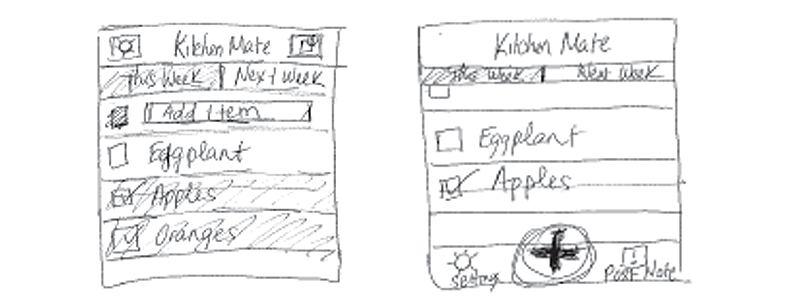 Kitchen Mate
This Week Next Week
Add Item
Eggplant
Apples
Oranges
Kitchen Mate
This Week Next Week
Eggplant
Apples
Settings Post Note